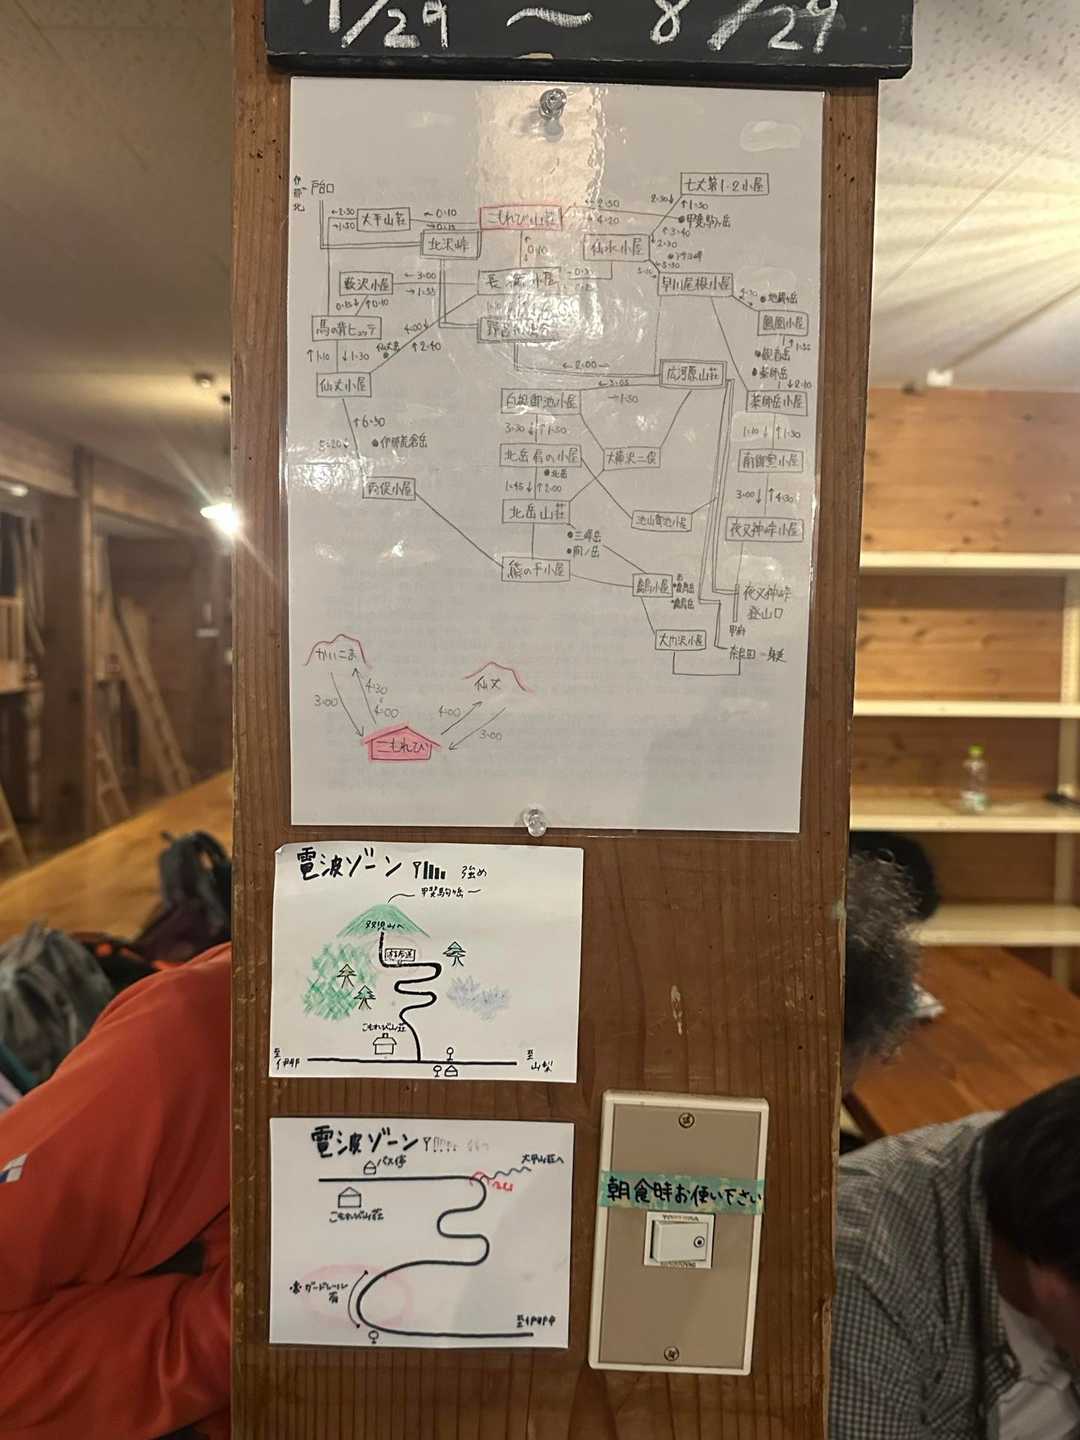 7/29 〜 8/29
戸台口
伊那北
七丈第1・2小屋
←2:30
→1:50
大平山荘
←0:10
→0:15
こもれび山荘
←2:50
→4:20
2:30↓ ↑1:50
甲斐駒ヶ岳
↑3:40
↓2:30
北沢峠
0:10
仙水小屋
薮沢小屋
←3:00
→1:55
長衛小屋
早川尾根小屋
地蔵ヶ岳
0:15↓ ↑0:10
馬の背ヒュッテ
4:00↓
仙丈岳
↑2:40
鳳凰小屋
観音岳
薬師岳
↑1:10 ↓1:30
←2:00
仙丈小屋
広河原山荘
←3:05
→1:50
白根御池小屋
↓2:10
薬師岳小屋
↑6:50
5:20↓
伊那荒倉岳
3:30↓ ↑1:50
1:10↓ ↑1:30
北岳肩の小屋
大樺沢二俣
南御室小屋
北岳
両俣小屋
1:45↓ ↑2:00
3:00↓ ↑4:30
北岳山荘
池山御池小屋
夜叉神峠小屋
三峰岳
間ノ岳
熊の平小屋
農鳥小屋
農鳥岳
夜叉神峠
登山口
甲府
大門沢小屋
奈良田 - 身延
かいこま
仙丈
3:00
4:30
4:00
4:00
3:00
こもれび
電波ゾーン 強め
甲斐駒ヶ岳
双児山へ
こもれび山荘
至伊那
至山梨
電波ゾーン
バス停
大平山荘へ
ココ
こもれび山荘
ガードレール
有
至伊那
朝食時お使い下さい